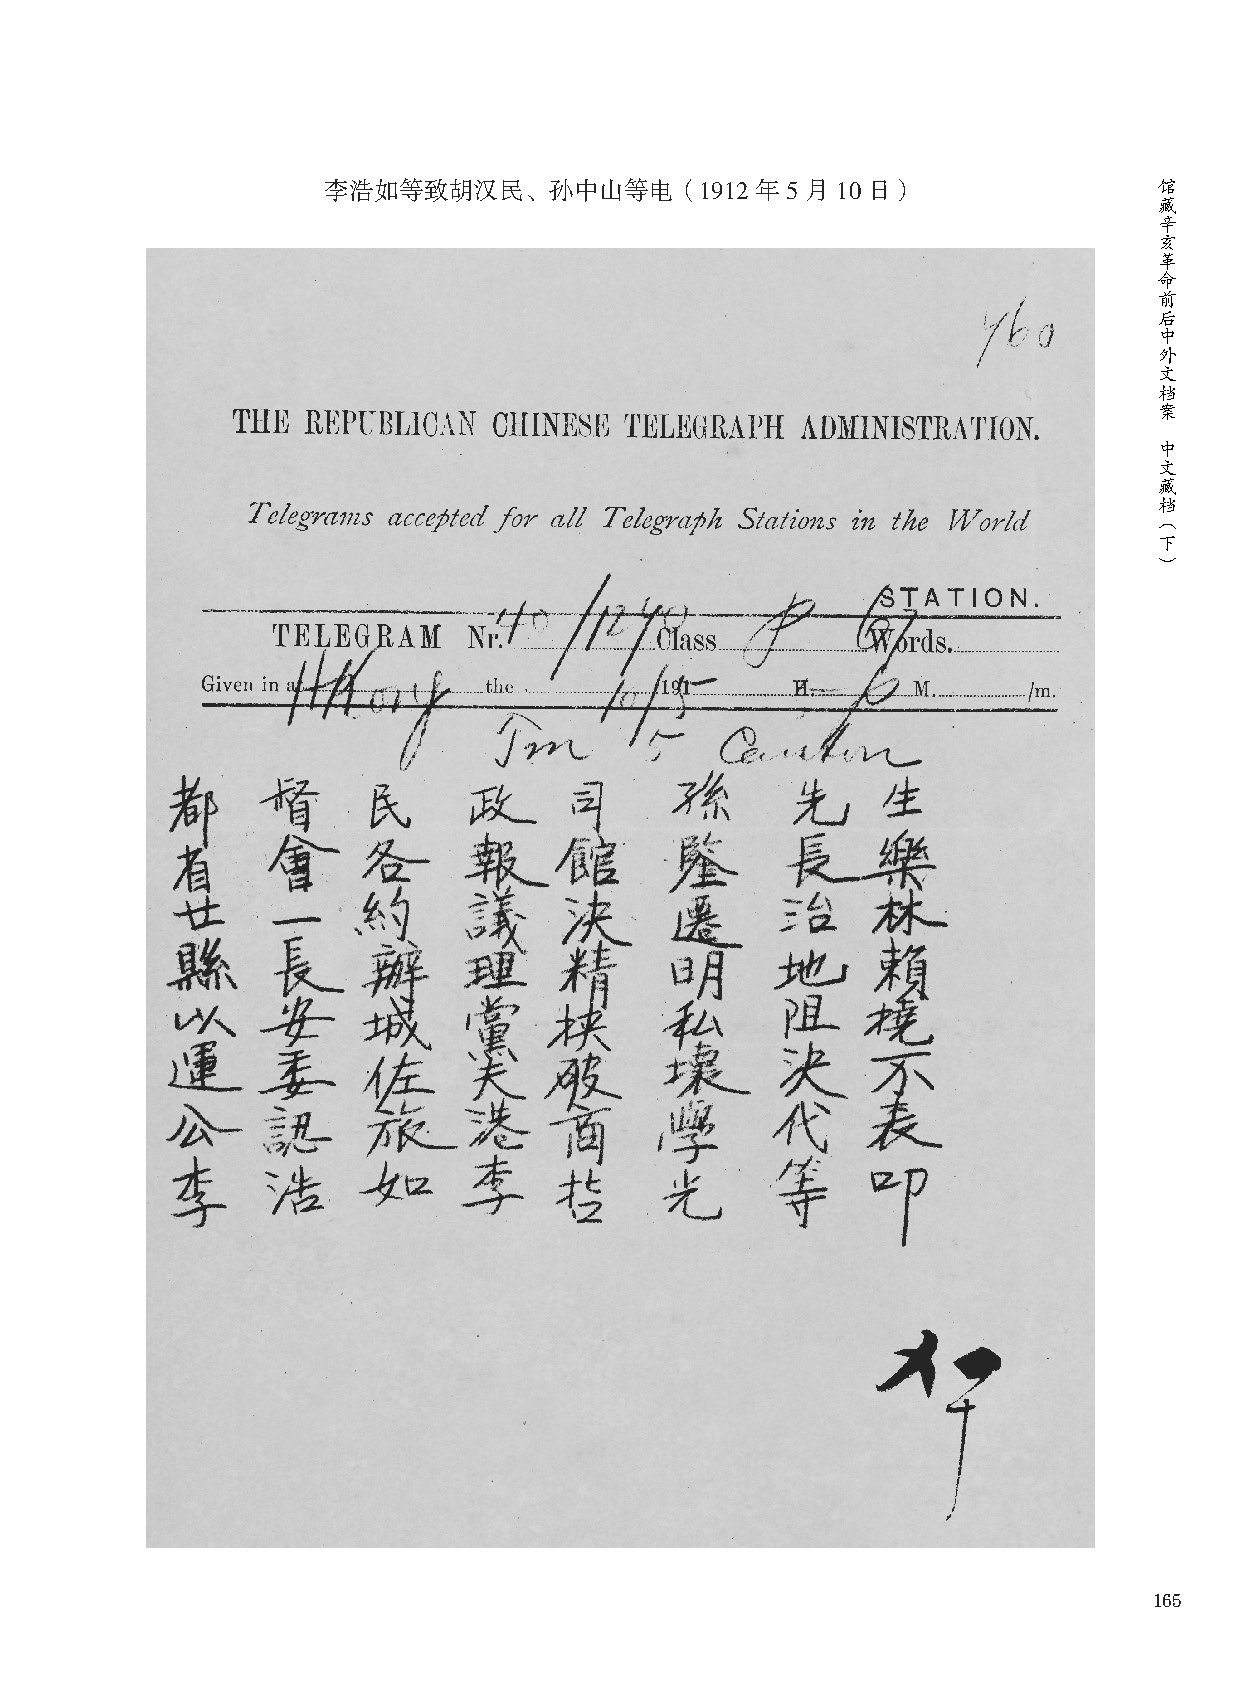 李浩如等致胡汉民、孙中山等电（1912年5月10日）
馆藏辛亥革命前后中外文档案 中文藏档（下）
760
THE REPUBLICAN CHINESE TELEGRAPH ADMINISTRATION.
Telegrams accepted for all Telegraph Stations in the World
STATION.
TELEGRAM Nr. 40/1240 Class P 67 Words.
Given in at HKong the 10/5 191 H. 6 M. /m.
Tm 5 Canton
都督民政司孫先生
省會各報館鑒長樂
廿一約議決遷治林
縣長辦理精明地賴
以安城黨挾私阻撓
運委佐夫破壞決不
公認旅港商學代表
李浩如李哲光等叩
165